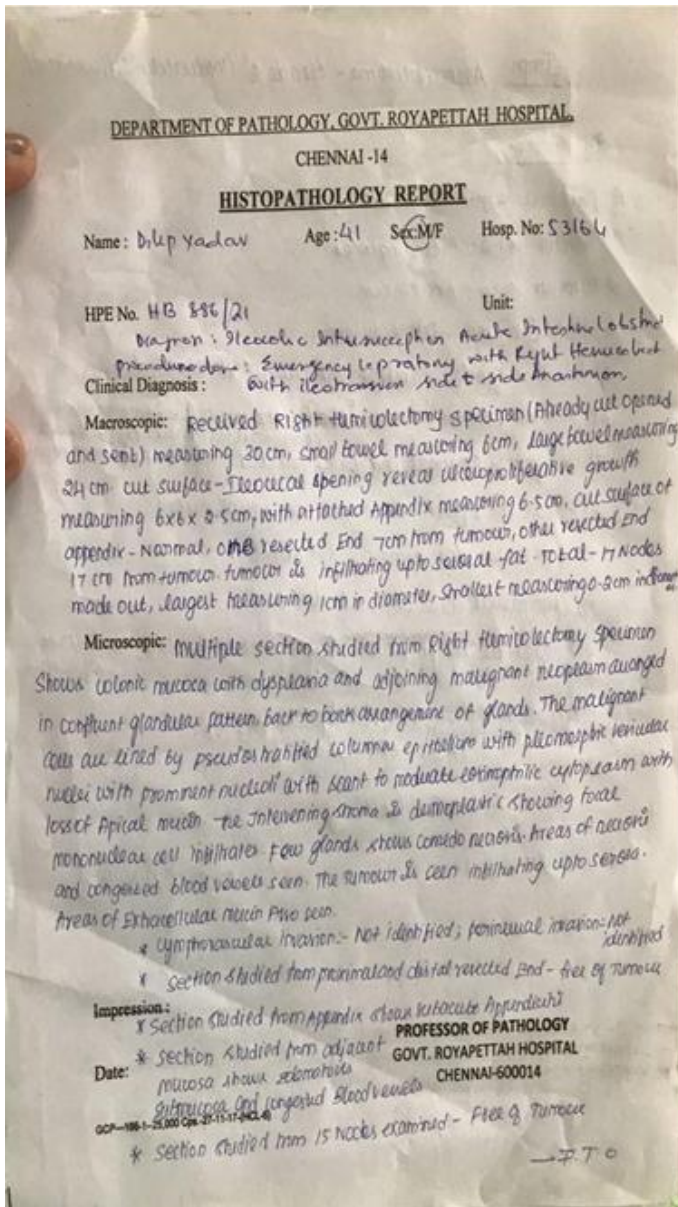 DEPARTMENT OF PATHOLOGY, GOVT. ROYAPETTAH HOSPITAL,
CHENNAI -14
HISTOPATHOLOGY REPORT
Name : Dilip Yadav Age : 41 Sex: M/F Hosp. No: 53164
HPE No. HB 886/21 Unit:
Ileocolic Acute
: Emergency with Right
Clinical Diagnosis : with side to side
Macroscopic: Received Right Hemicolectomy specimen (Already cut opened
and sent) measuring 30cm, small bowel measuring 6cm, large bowel measuring
24 cm cut surface - Ileocecal opening reveal ulceroproliferative growth
measuring 6x6x 2.5cm, with attached Appendix measuring 6.5cm, cut surface of
appendix - Normal, one resected End 7cm from tumour, other resected End
17 cm from tumour. tumour is infiltrating upto serosal fat. Total - 17 Nodes
made out, largest measuring 1cm in diameter, smallest measuring 0.2cm in
Microscopic: Multiple section studied from Right Hemicolectomy specimen
Shows colonic mucosa with dysplasia and adjoining malignant neoplasm arranged
in confluent glandular pattern back to back arrangement of glands. The malignant
cells are lined by pseudostratified columnar epithelium with pleomorphic vesicular
nuclei with prominent nucleoli with scant to moderate eosinophilic cytoplasm with
loss of Apical mucin. The Intervening stroma is desmoplastic showing focal
mononuclear cell infiltrates. Few glands shows comedo necrosis. Areas of necrosis
and congested blood vessels seen. The tumour is seen infiltrating upto serosa.
Areas of Extracellular mucin Also seen.
* Lymphovascular Invasion:- Not identified; perineural invasion:- Not
identified
* Section studied from proximal and distal resected End - free of Tumour
Impression :
* Section studied from Appendix shows Appendicitis
PROFESSOR OF PATHOLOGY
* Section studied from adjacent GOVT. ROYAPETTAH HOSPITAL
Date: mucosa shows CHENNAI-600014
submucosa and congested Blood vessels
* Section studied from 15 Nodes examined - Free of Tumour
→ P.T.O